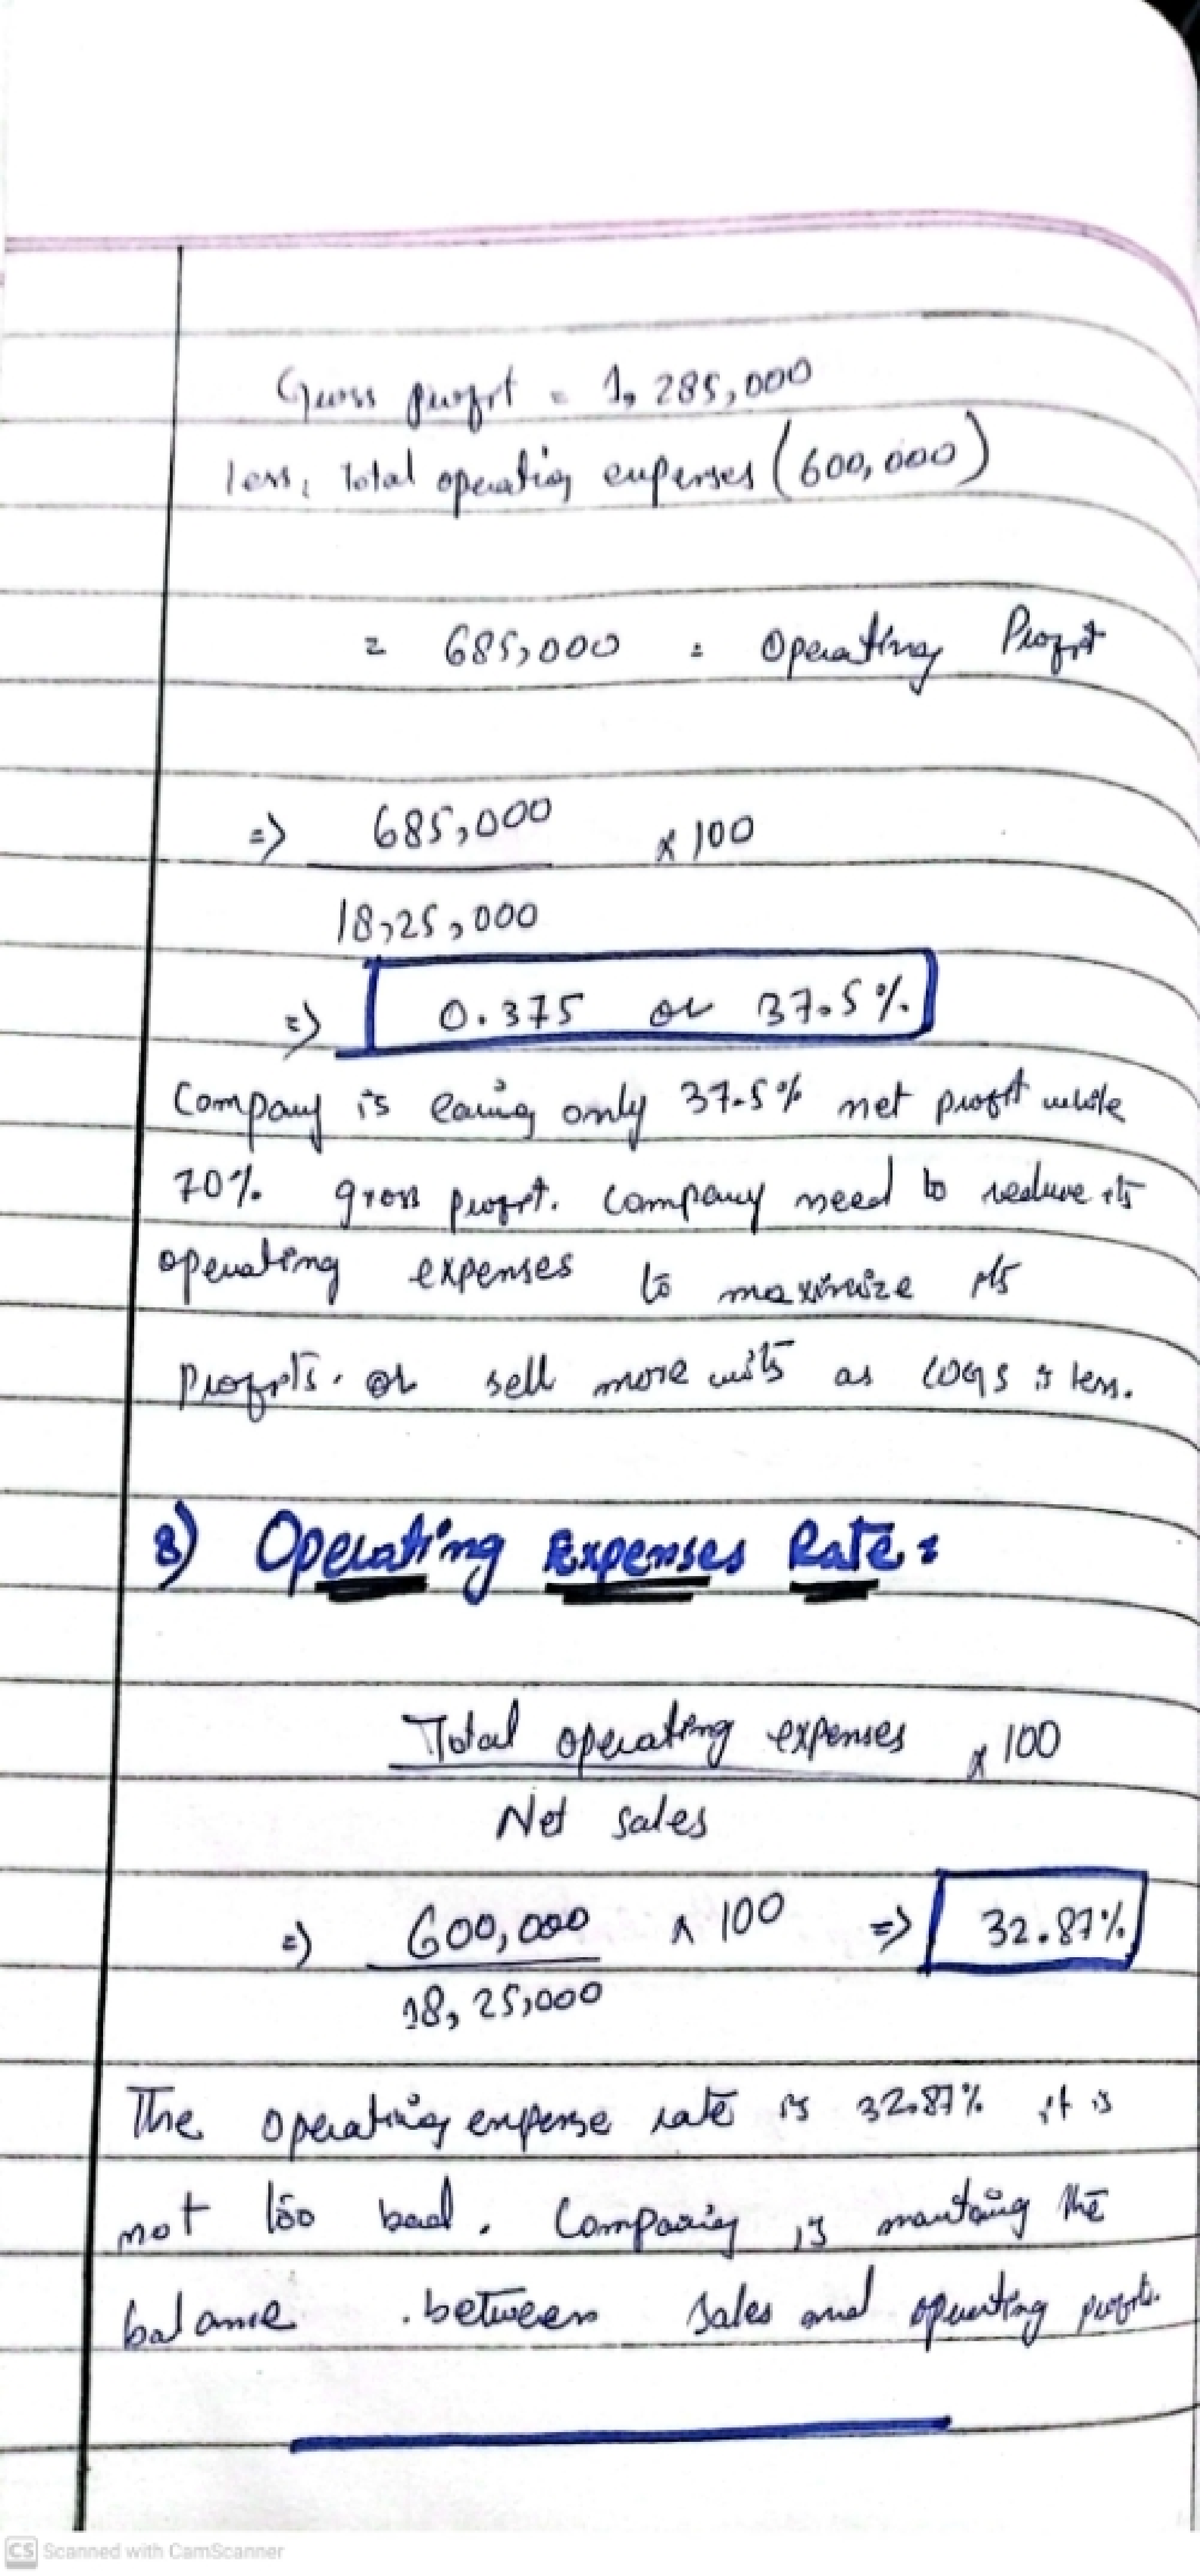 Gross profit = 1,285,000
less, Total operating expenses (600,000)
= 685,000 = Operating Profit
=> 685,000 x 100
18,25,000
=> 0.375 or 37.5%
Company is earing only 37.5% net profit while
70% gross profit. Company need to reduce its
operating expenses to maximize its
Profits. or sell more units as COGS is less.
3) Operating Expenses Rate:
Total operating expenses x 100
Net sales
=> 600,000 x 100 => 32.87%
18,25,000
The operating expense rate is 32.87% it is
not too bad. is the
balance between sales and operating profits.
CS Scanned with CamScanner